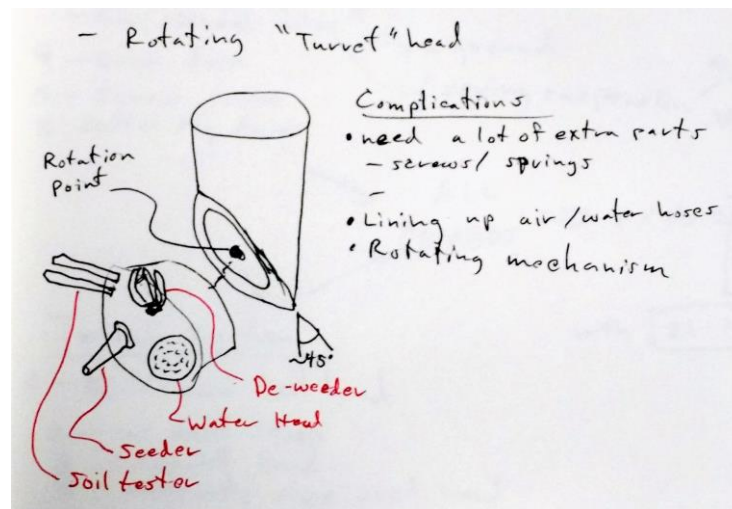 - Rotating "Turret" head
Complications
• need a lot of extra parts
- screws/springs
-
• Lining up air/water hoses
• Rotating mechanism
Rotation
Point
~45°
De-weeder
Water Head
Seeder
Soil tester